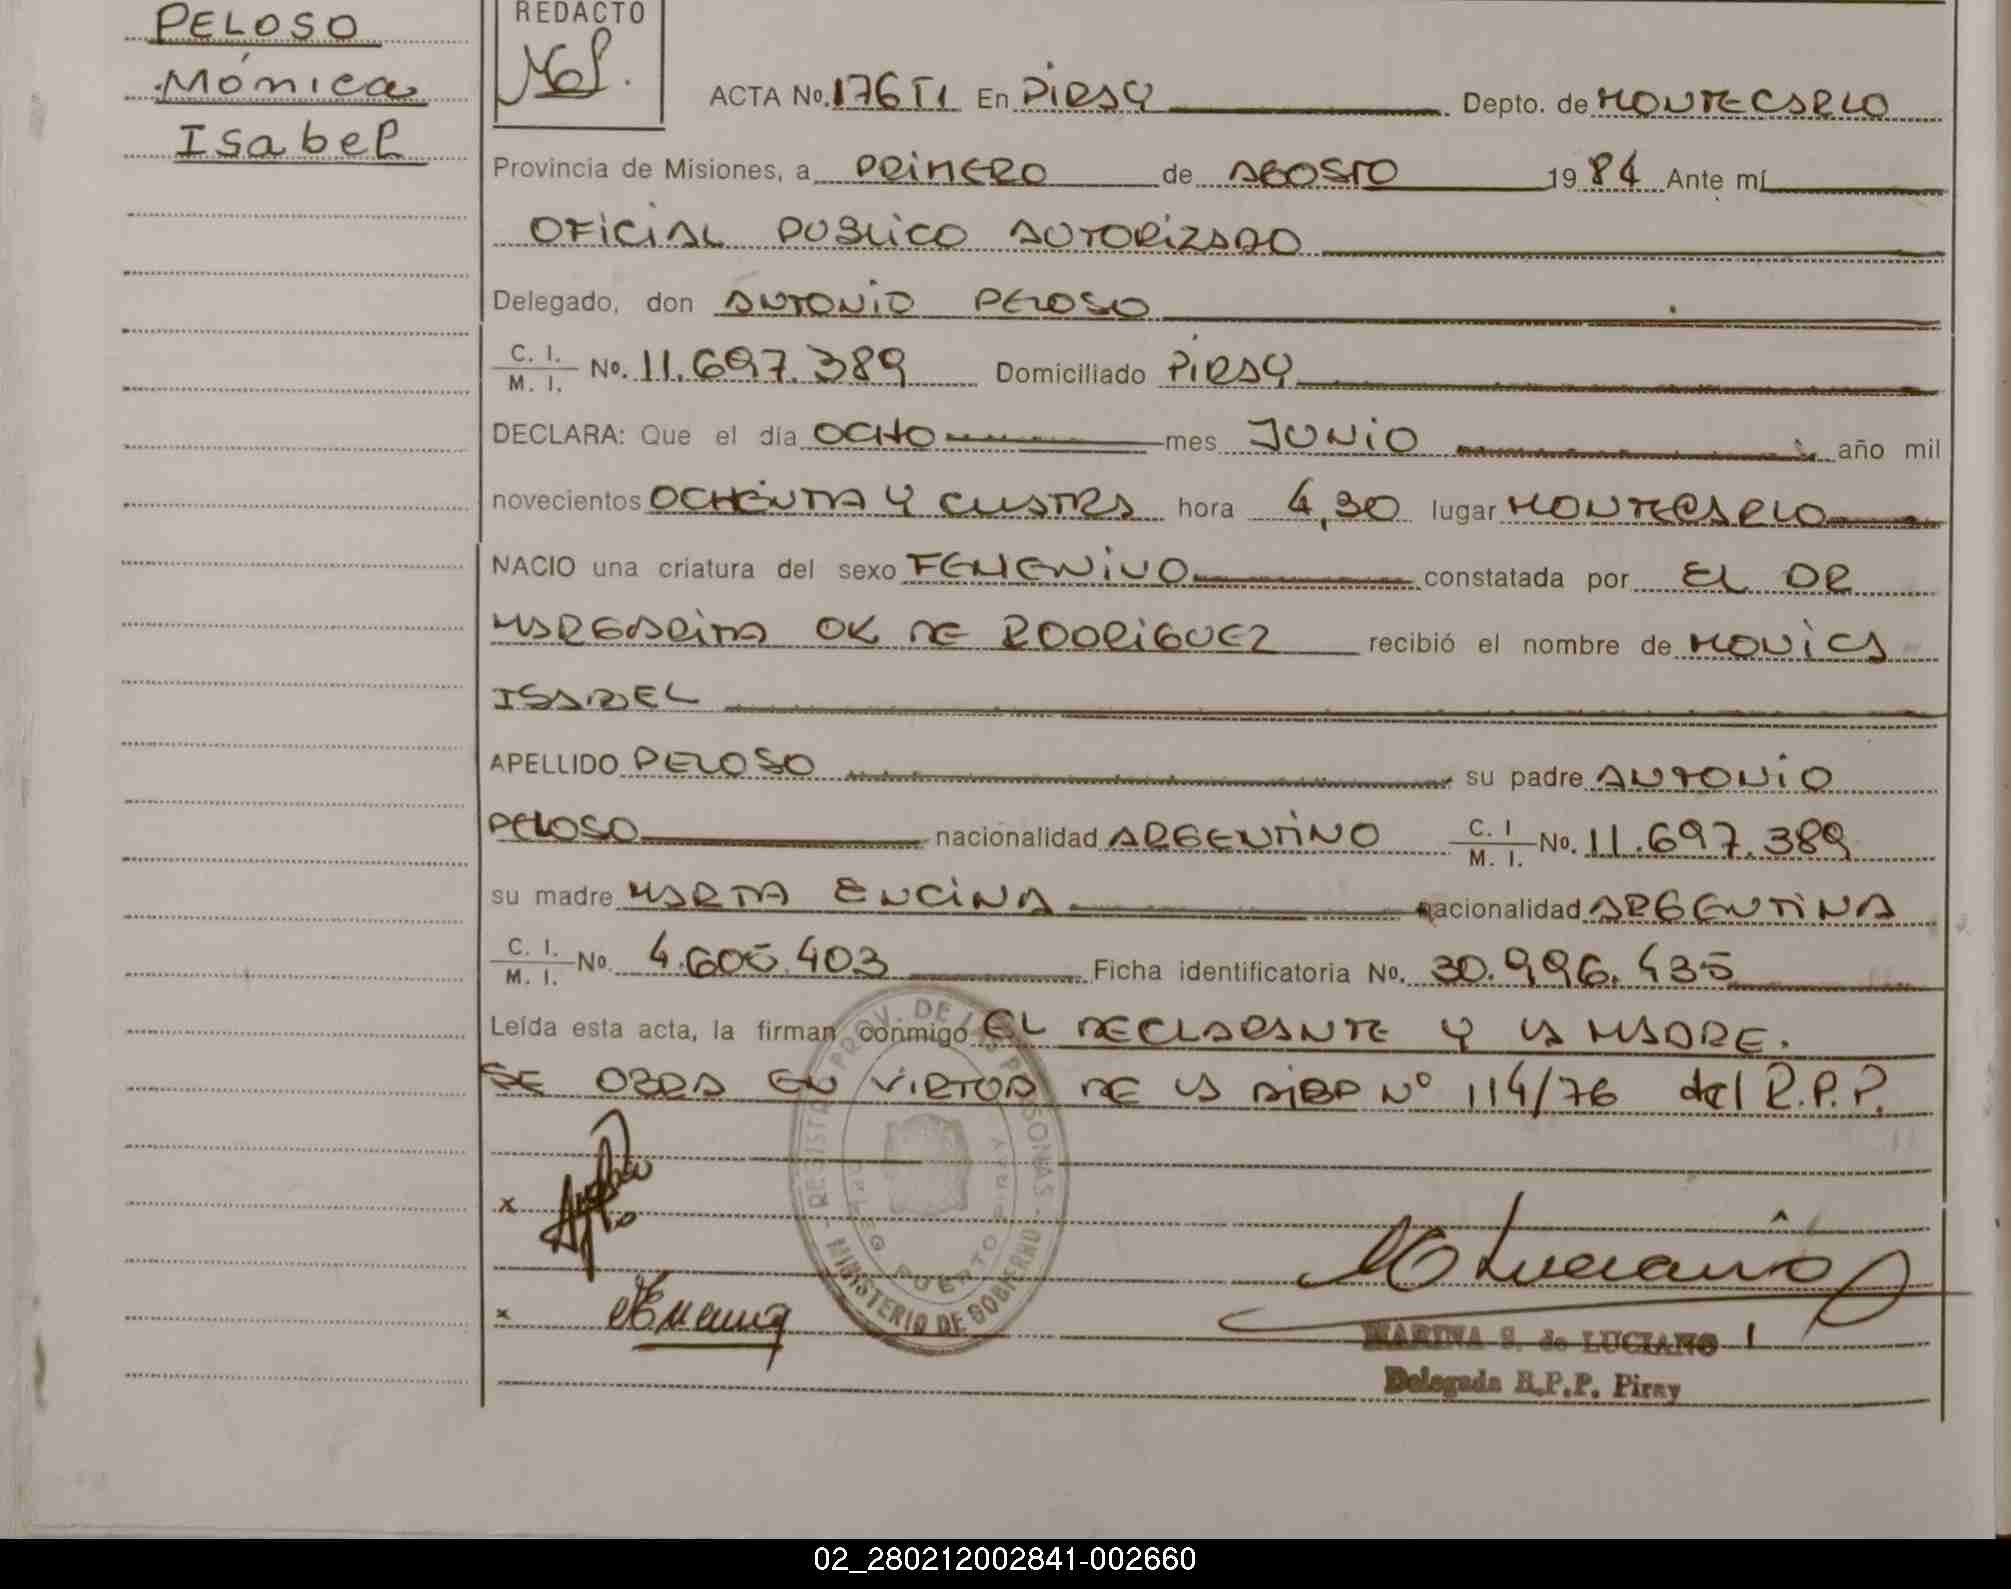 PELOSO
Mónica
Isabel
REDACTO
ACTA No. 176 T1 En PIRAY Depto. de MONTECARLO
Provincia de Misiones, a PRIMERO de AGOSTO 1984 Ante mí
OFICIAL PUBLICO AUTORIZADO
Delegado, don ANTONIO PELOSO
C. I. / M. I. No. 11.697.389 Domiciliado PIRAY
DECLARA: Que el día OCHO mes JUNIO año mil
novecientos OCHENTA Y CUATRA hora 4,30 lugar MONTECARLO
NACIO una criatura del sexo FEMENINO constatada por EL DR
MARGARITA OK DE RODRIGUEZ recibió el nombre de MONICA
ISABEL
APELLIDO PELOSO su padre ANTONIO
PELOSO nacionalidad ARGENTINO C. I / M. I. No. 11.697.389
su madre MARTA ENCINA nacionalidad ARGENTINA
C. I. / M. I. No. 4.606.403 Ficha identificatoria No. 30.996.435
Leída esta acta, la firman conmigo EL DECLARANTE Y LA MADRE.
SE OBRA EN VIRTUD DE LA DISP Nº 114/76 del R.P.P.
REGISTRO PROV. DE LAS PERSONAS - MINISTERIO DE GOBIERNO -
PUERTO PIRAY
x
x MEncina
M Luciano
MARINA S. de LUCIANO
Delegada R.P.P. Piray
02_280212002841-002660